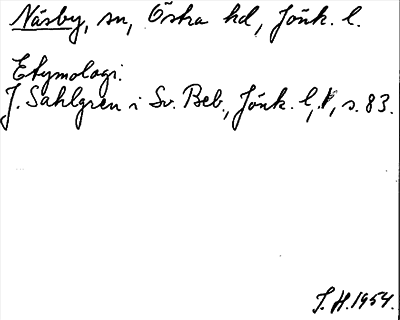 Näsby, sn, Östra hd, Jönk. l.
Etymologi:
J. Sahlgren i Sv. Beb., Jönk. l., s. 83.
J. H. 1954.